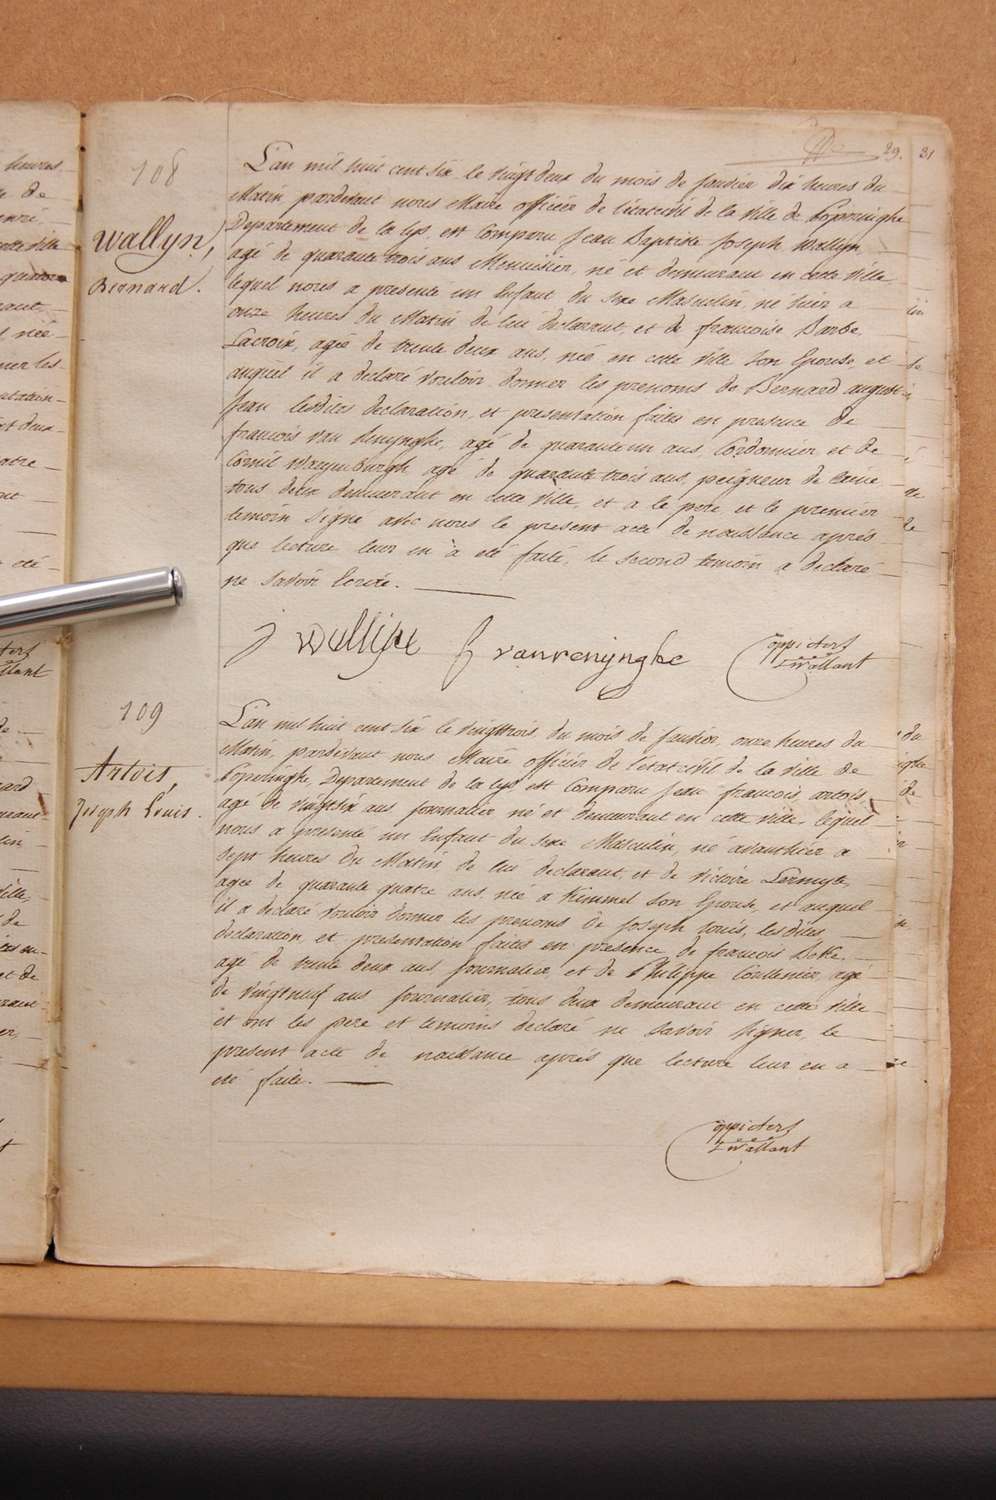 29. 31
108
Wallyn,
Bernard.
L'an mil huit cent six le vingt deux du mois de janvier dix heures du
Matin pardevant nous Maire officier de l'état civil de la ville de Poperinghe
Departement de la Lys, est Comparu Jean Baptiste Joseph Wallyn,
agé de quarante trois ans Menuisier, né et demeurant en cette ville
lequel nous a presenté un Enfant du sexe Masculin, né hier a
onze heures du Matin de lui declarant, et de francoise Barbe
Lacroix, agée de trente deux ans, née en cette ville son Epouse, et
auquel il a declaré vouloir donner les prenoms de Bernard august
Jean lesdites declaration, et presentation faites en presence de
francois van Renynghe, agé de quarante un ans, Cordonnier et de
Cornil agé de quarante trois ans, peigneur de laine
tous deux demeurant en cette ville, et a le pere et le premier
temoin signé avec nous le present acte de naissance aprés
que lecture leur en a eté faite, le second temoin a declaré
ne savoir Ecrire.
J Wallijn f vanrenijnghe
109
Artois,
Joseph Louis.
L'an mil huit cent six le vingt trois du mois de janvier, onze heures du
Matin, pardevant nous Maire officier de l'etat civil de la ville de
Poperinghe, Departement de la Lys est Comparu Jean francois artois,
agé de vingt six ans journalier né et demeurant en cette ville, lequel
nous a presenté un Enfant du sexe Masculin, né avanthier a
sept heures du Matin de lui declarant, et de victoire
agée de quarante quatre ans, née a Kemmel son Epouse, et auquel
il a declaré vouloir donner les prenoms de Joseph Louis, lesdites
declaration et presentation faites en presence de francois
agé de trente deux ans, journalier, et de Philippe agé
de vingt neuf ans journalier, tous deux demeurant en cette ville
et ont les pere et temoins declaré ne savoir signer, le
present acte de naissance aprés que lecture leur en a
eté faite.